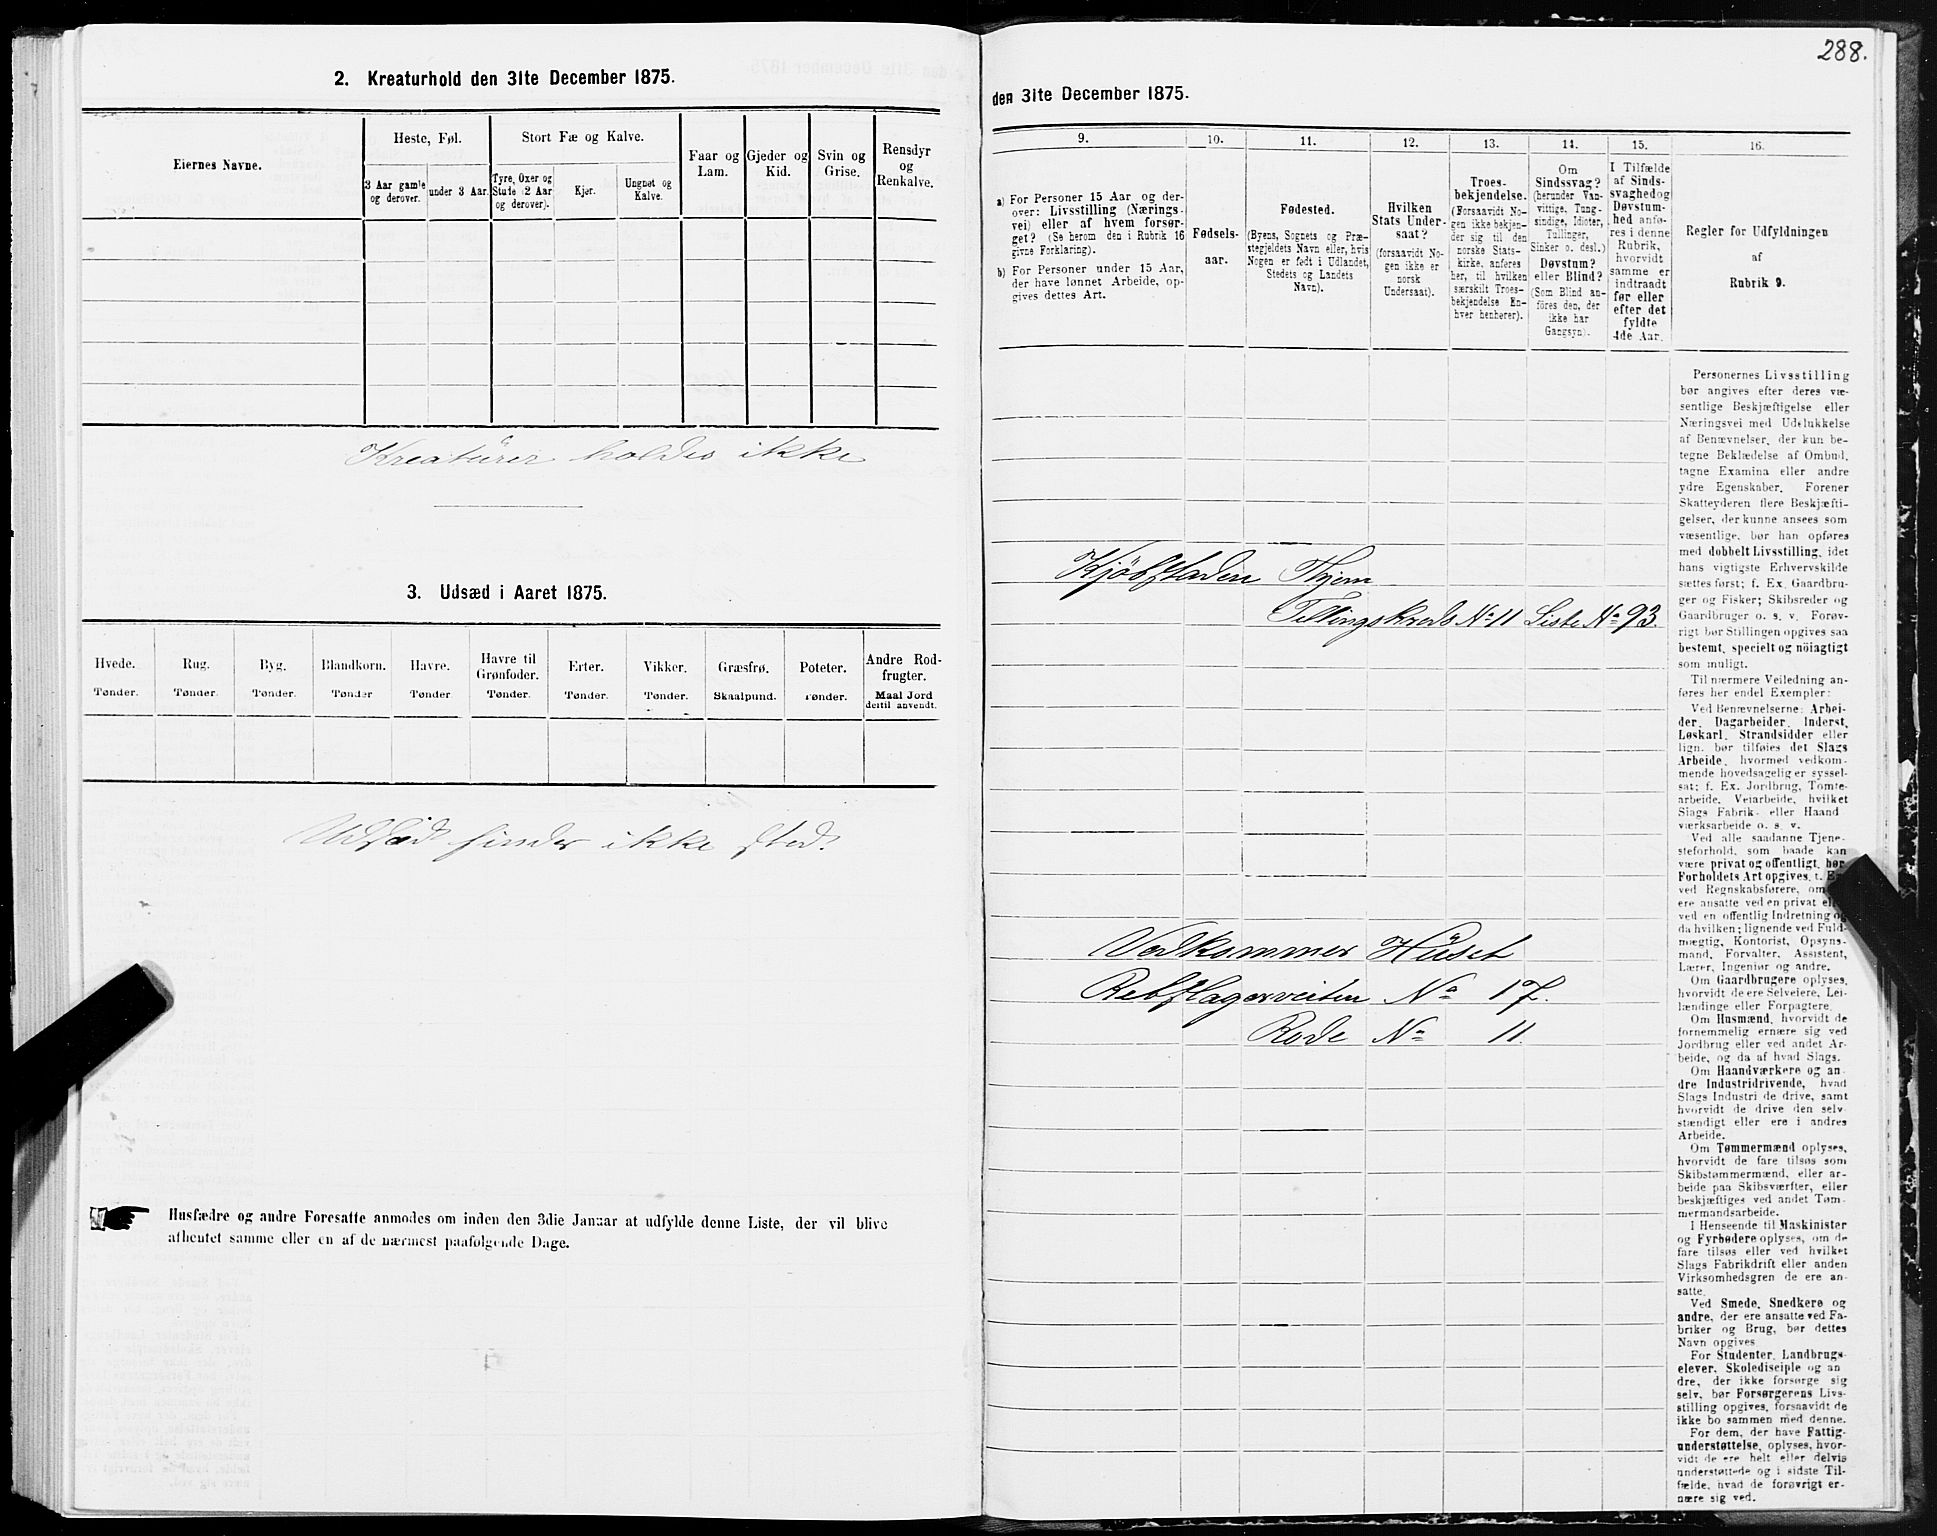 2. Kreaturhold den 31te December 1875.
Eiernes Navne.
Heste, Føl.
Stort Fæ og Kalve.
Faar og
Lam.
Gjeder og
Kid.
Svin og
Grise.
Rensdyr
og
Renkalve.
3 Aar gamle
og derover.
under 3 Aar.
Tyre, Oxer og
Stude (2 Aar
og derover).
Kjør.
Ungnøt og
Kalve.
Kreatürer holdes ikke
3. Udsæd i Aaret 1875.
Hvede.
Tønder.
Rug.
Tønder.
Byg.
Tønder.
Blandkorn.
Tønder
Havre.
Tønder
Havre til
Grønfoder.
Tønder.
Erter.
Tønder.
Vikker.
Tønder.
Græsfrø.
Skaalpund.
Poteter.
Tønder.
Andre Rod-
frugter.
Maal Jord
dertil anvendt.
Udsæd finder ikke sted.
Husfædre og andre Foresatte anmodes om inden den 3die Januar at udfylde denne Liste, der vil blive
afhentet samme eller en af de nærmest paafølgende Dage.
288.
den 31te December 1875.
9.
a) For Personer 15 Aar og der-
over: Livsstilling (Nærings-
vei) eller af hvem forsør-
get? (Se herom den i Rubrik 16
givne Forklaring).
b) For Personer under 15 Aar,
der have lønnet Arbeide, op-
gives dettes Art.
10.
Fødsels-
aar.
11.
Fødested.
(Byens, Sognets og Præ-
stegjeldets Navn eller, hvis
Nogen er født i Udlandet,
Stedets og Landets
Navn).
12.
Hvilken
Stats Under-
saat?
(forsaavidt No-
gen ikke er
norsk
Undersaat).
13.
Troes-
bekjendelse.
(Forsaavidt No-
gen ikke bekjen-
der sig til den
norske Stats-
kirke, anføres
her, til hvilken
særskilt Troes-
bekjendelse En-
hver henhører).
14.
Om
Sindssvag?
(herunder Van-
vittige, Tung-
sindige, Idioter,
Tullinger,
Sinker o. desl.)
Døvstum?
eller Blind?
(Som Blind an-
føres den, der
ikke har
Gangsyn).
15.
I Tilfælde
af Sinds-
svaghed og
Døvstum-
hed anfø-
res i denne
Rubrik,
hvorvidt
samme er
indtraadt
før eller
efter det
fyldte
4de Aar.
16.
Regler for Udfyldningen
af
Rubrik 9.
Kjöbstaden Thjem
Tellingskreds No 11 Liste No 93.
Vedkommer Hüset
Rebslagerveiten No 17.
Rode No 11.
Personernes Livsstilling
bør angives efter deres væ-
sentlige Beskjæftigelse eller
Næringsvei med Udelukkelse
af Benævnelser, der kun be-
tegne Beklædelse af Ombud,
tagne Examina eller andre
ydre Egenskaber. Forener
Skatteyderen flere Beskjæfti-
gelser, der kunne ansees som
væsentlige, bør han opføres
med dobbelt Livsstilling, idet
hans vigtigste Erhvervskilde
sættes først; f. Ex. Gaardbru-
ger og Fisker; Skibsreder og
Gaardbruger o. s. v. Forøv-
rigt bør Stillingen opgives saa
bestemt, specielt og nöiagtigt
som muligt.
Til nærmere Veiledning an-
føres her endel Exempler:
Ved Benævnelserne: Arbei-
der, Dagarbeider, Inderst,
Løskarl, Strandsidder eller
lign. bør tilføies det Slags
Arbeide, hvormed vedkom-
mende hovedsagelig er syssel-
sat; f. Ex. Jordbrug, Tomte-
arbeide, Veiarbeide, hvilket
Slags Fabrik- eller Haand
værksarbeide o. s. v.
Ved alle saadanne Tjene-
steforhold, som baade kan
være privat og offentligt, bør
Forholdets Art opgives, t. E
ved Regnskabsførere, om
ere ansatte ved en privat el
ved en offentlig Indretning og
da hvilken; lignende ved Fuld-
mægtig, Kontorist, Opsyns-
mand, Forvalter, Assistent,
Lærer, Ingeniør og andre.
Om Gaardbrugere oplyses,
hvorvidt de ere Selveiere, Lei-
lændinge eller Forpagtere.
Om Husmænd, hvorvidt de
fornemmelig ernære sig ved
Jordbrug eller ved andet Ar-
beide, og da af hvad Slags.
Om Haandværkere og an-
dre Industridrivende, hvad
Slags Industri de drive, samt
hvorvidt de drive den selv-
stændigt eller ere i andres
Arbeide.
Om Tømmermænd oplyses,
hvorvidt de fare tilsøs som
Skibstømmermænd, eller ar-
beide paa Skibsværfter, eller
beskjæftiges ved andet Tøm-
mermandsarbeide.
I Henseende til Maskinister
og Fyrbødere oplyses, om de
fare tilsøs eller ved hvilket
Slags Fabrikdrift eller anden
Virksomhedsgren de ere an-
satte.
Ved Smede, Snedkere og
andre, der ere ansatte ved Fa-
briker og Brug, bør dettes
Navn opgives
For Studenter, Landbrugs-
elever, Skoledisciple og an
dre, der ikke forsørge sig
selv, bør Forsørgerens Livs-
stilling opgives, forsaavidt de
ikke bo sammen med denne.
For dem, der have Fattig-
understøttelse, oplyses, hvor-
vidt de ere helt eller delvis
understøttede og i sidste Til-
fælde, hvad de forøvrigt er-
nære sig ved.